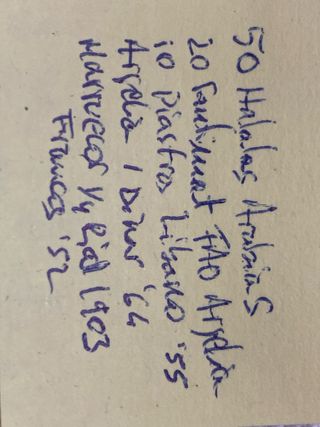 50 Halalas Arabia S
20 Santimat FAO Argelia
10 Piastras Libano '55
Argelia 1 Dinar '64
Marruecos 1/4 Rial 1903
Francos '52